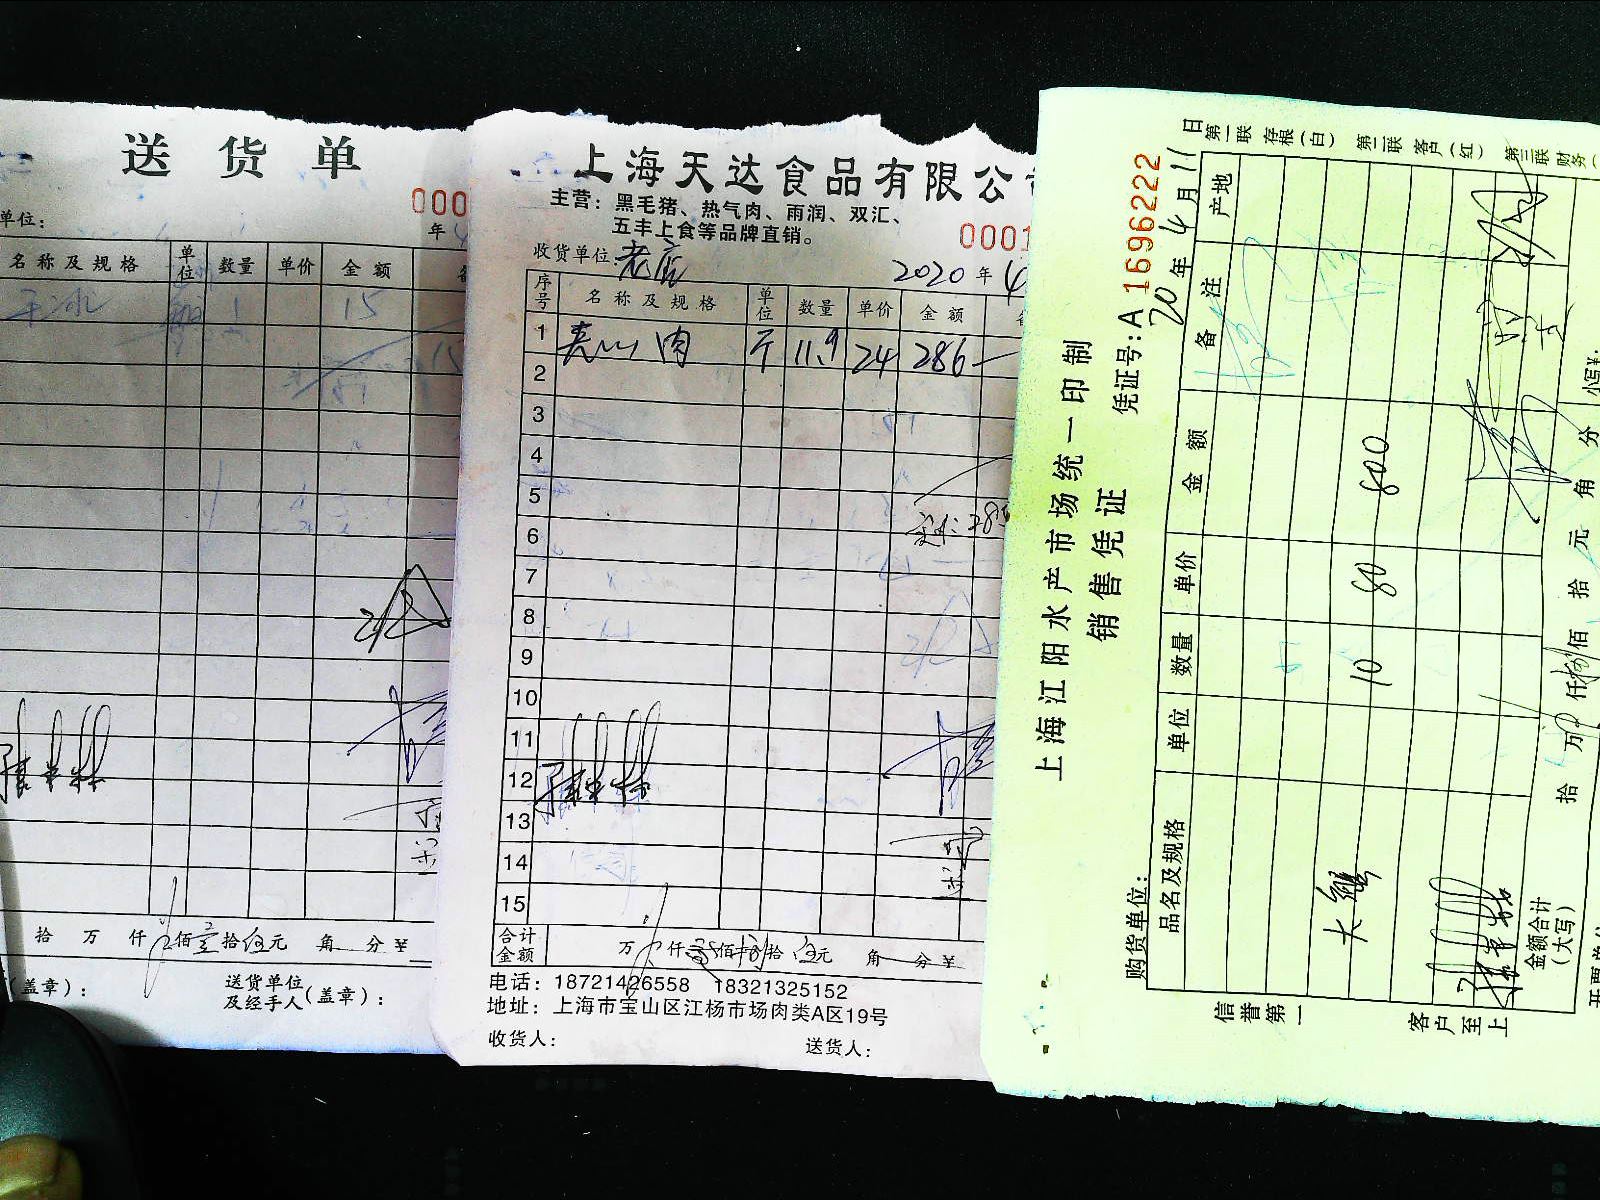 送货单
000
单位:
年
名称及规格 单位 数量 单价 金额
干冰 15
15
拾 万 仟 佰壹拾伍元 角 分 ¥
(盖章): 送货单位及经手人(盖章):
上海天达食品有限公司
主营: 黑毛猪、热气肉、雨润、双汇、
五丰上食等品牌直销。
0001
收货单位: 老店 2020年4
序号 名称及规格 单位 数量 单价 金额
1 夹心肉 斤 11.9 24 286
2
3
4
5
6
7
8
9
10
11
12
13
14
15
合计金额 万 仟 贰佰捌拾伍元 角 分 ¥
电话: 18721426558 18321325152
地址: 上海市宝山区江杨市场肉类A区19号
收货人: 送货人:
上海江阳水产市场统一印制
销售凭证
凭证号: A 1696222
购货单位: 20年4月11日
品名及规格 单位 数量 单价 金额 备注 产地
大鳗 10 80 800
金额合计(大写) 拾 万 仟捌佰 拾 元 角 分 小写¥:
第一联 存根(白) 第二联 客户(红) 第三联 财务(
信誉第一 客户至上